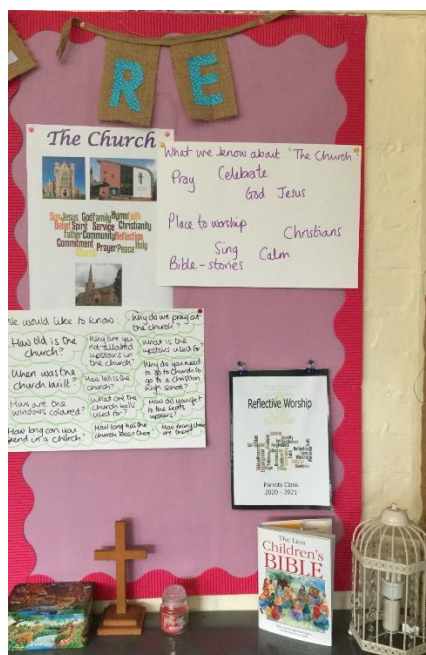 RE
The Church
Son Jesus God family Hymn Faith
Belief Spirit Service Christianity
Father Community Reflection
Commitment Prayer Peace Holy
Church
What we know about 'The Church'
Pray Celebrate
God Jesus
Place to worship
Christians
Sing Calm
Bible-stories
We would like to know:
Why do we pray at the church?
How old is the church?
Why are you not allowed upstairs in the church?
What is the upstairs used for?
When was the church built?
How tall is the church?
Why do you need to go to church to go to a christian high school?
How are the windows coloured?
What are the church bells used for?
How do you get to the seats upstairs?
How long can you spend in a church?
How long has the church been there?
Reflective Worship
Parrots Class
2020 - 2021
The Lion
Children's
BIBLE